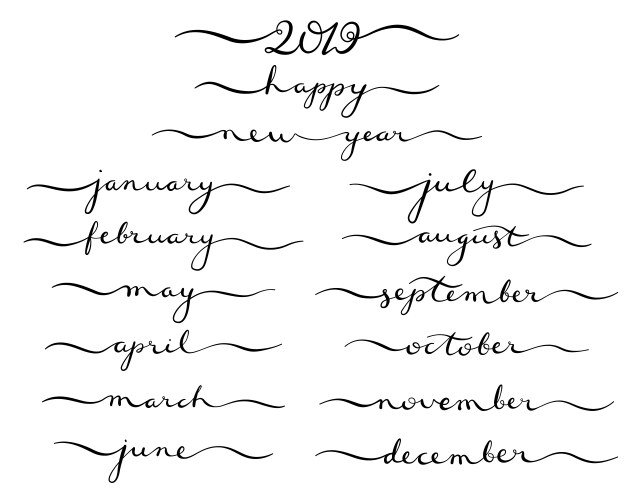 2019
happy
new year
january
february
may
april
march
june
july
august
september
october
november
december